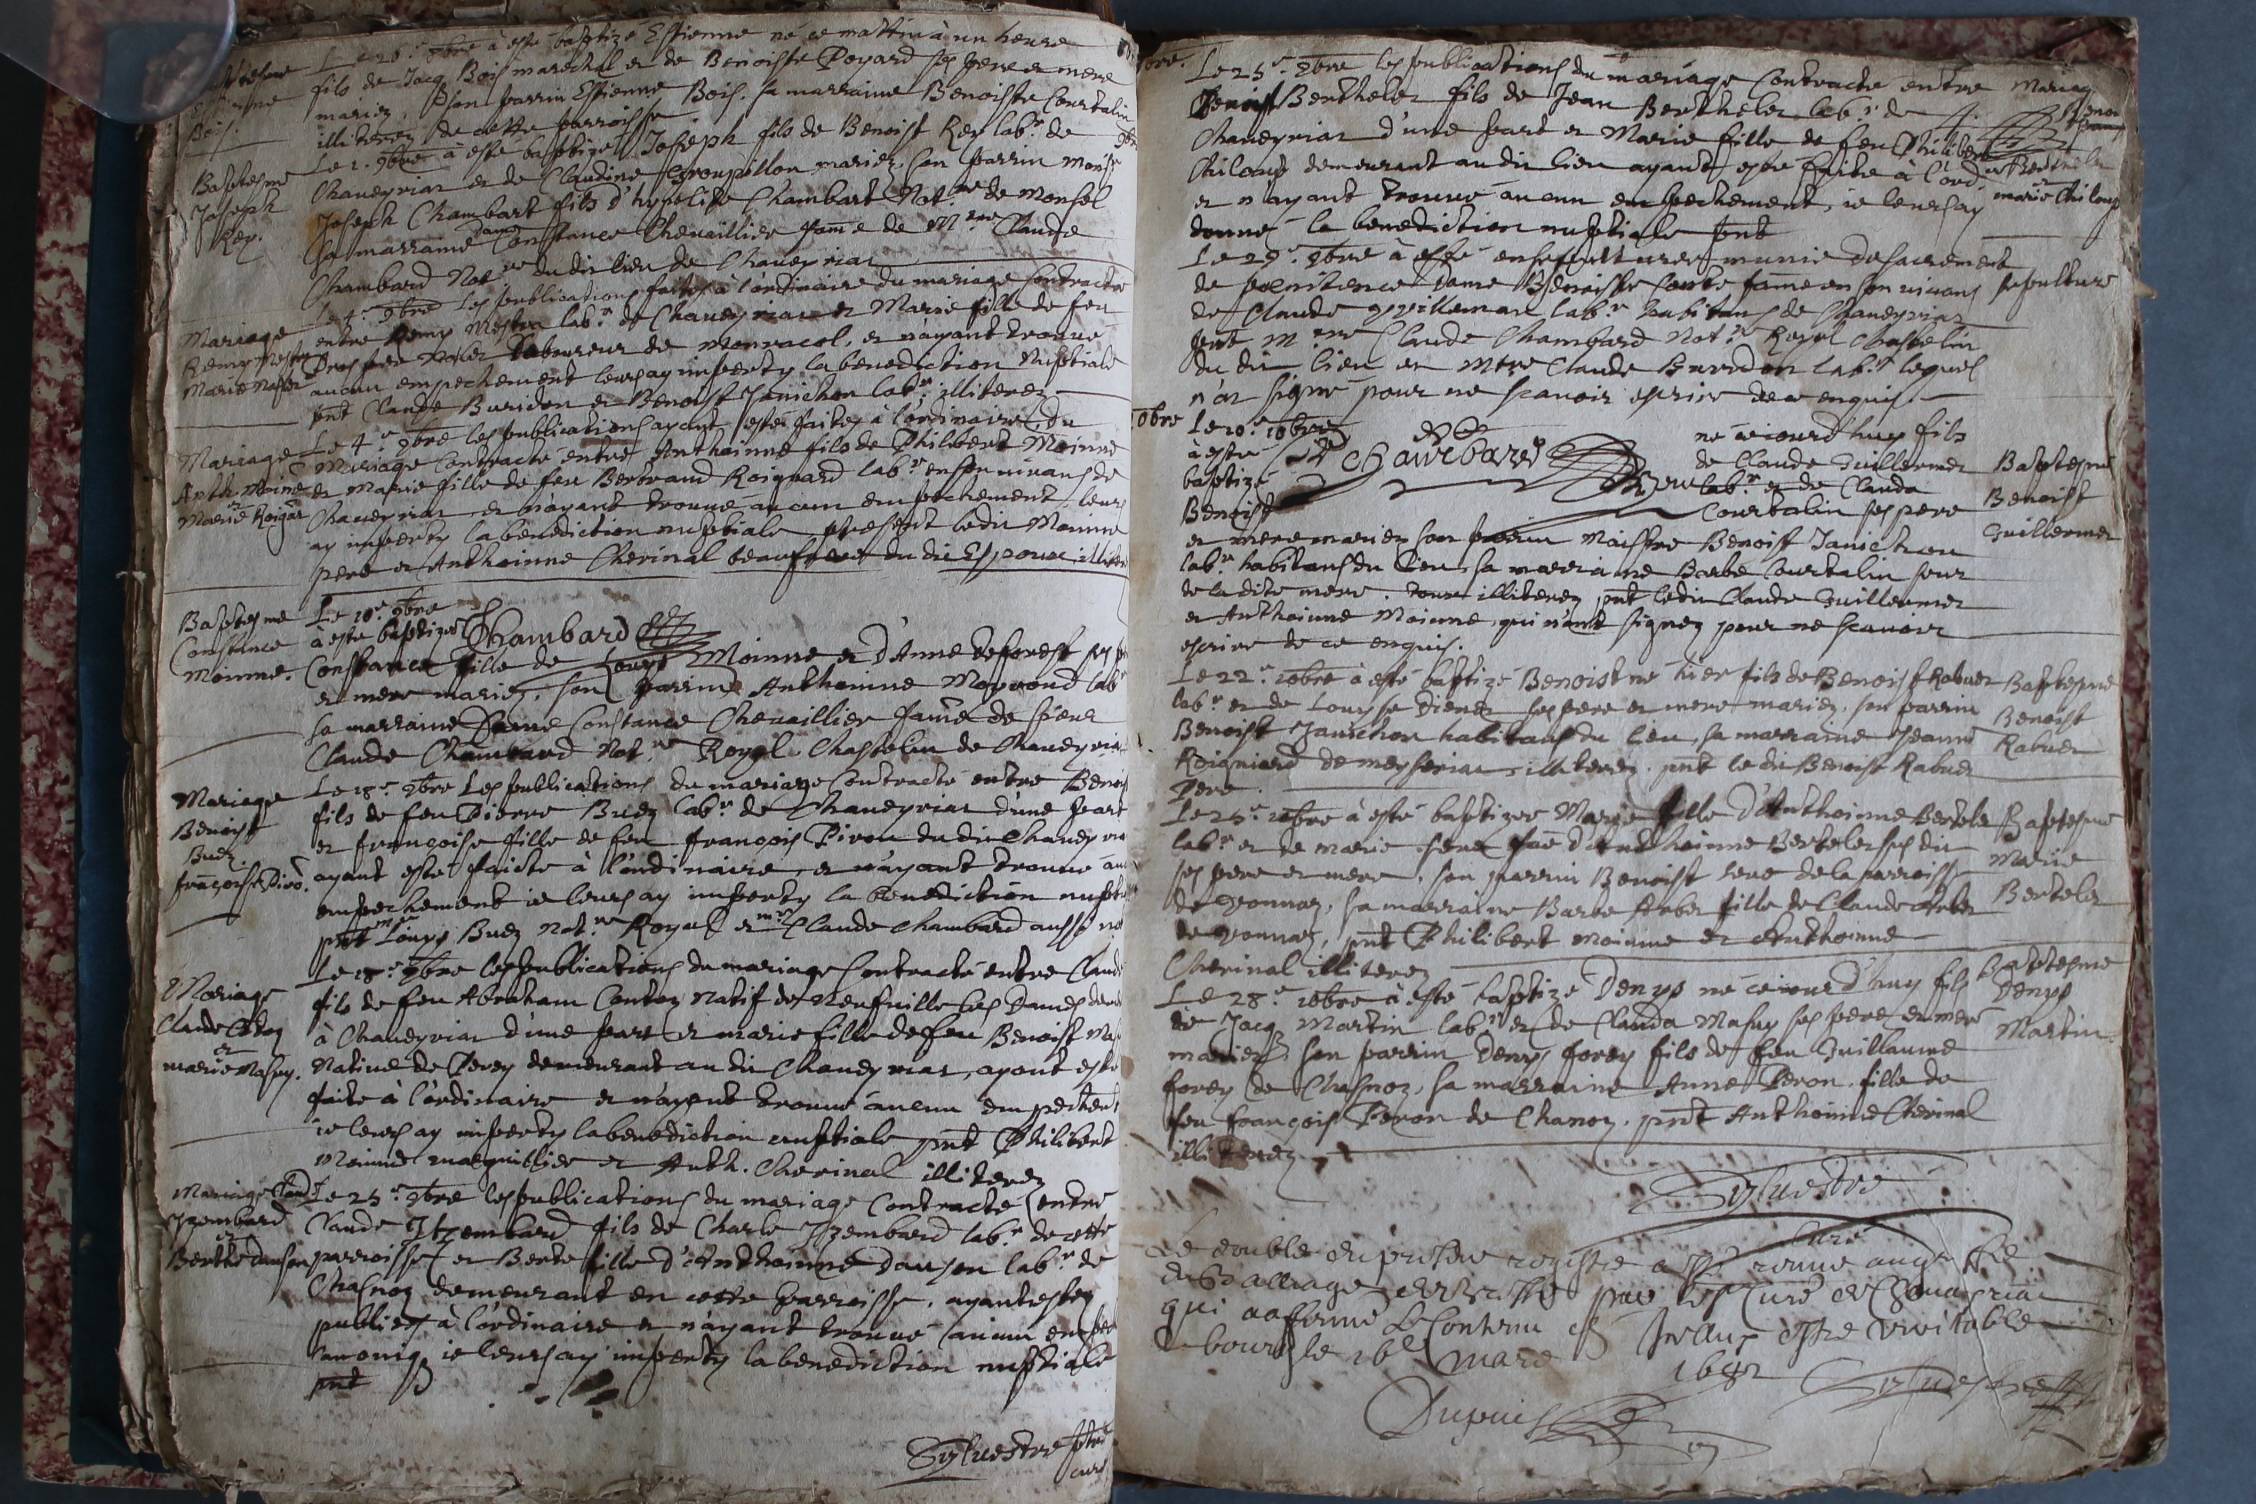 Le 26.e 8bre à esté baptizé Estienne né ce mattin à un heure
fils de Jacq. Bois marechal et de Benoiste Poyard ses pere et mere
mariez, son parrin Estienne Bois, sa marraine Benoiste Courtalin
illiterez de cette parroisse
Bois.
Baptesme
Joseph
Rey.
Le 1. 9bre à esté baptizé Joseph fils de Benoist Rey lab.r de
Chaveyriat et de Claudine Groupillon mariez, son parrin Mons.r
Joseph Chambart fils d'hypolite Chambart Not.re de Monsol
Sa marraine dame Constance Chevaillier fame de M.tre Claude
Chambard Not.re du dit lieu de Chaveyriat
Mariage
Remy Mestra
Marie
Le 4.e 9bre Les publications faites à l'ordinaire du mariage contracté
entre Remy Mestra lab.r de Chaveyriat et Marie fille de feu
laboureur de Monracol, et n'ayant trouvé
aucun empechement leurs ay imperty la benediction Nuptiale
pnt Claude Buridon et Benoist Janichon lab.rs illiterez
Mariage
Anth. Moinne
et
Marie Roigard
Le 4.e 9bre les publications ayant estéz faites à l'ordinaire du
Mariage contracté entre Anthoinne fils de Philibert Moinne
et Marie fille de feu Bertrand Roignard lab.r en son vivant de
Chaveyriat, et n'ayant trouvé aucun empechement, leurs
ay imperty la benediction nuptiale, present ledit Moinne
pere et Anthoinne Cherinal beaufrere du dit Espoux illiterez
Chambard
Baptesme
Constance
Moinne.
Le 10.e 9bre
à esté baptizee
Constance fille de Louys Moinne et d'Anne deforest ses pere
et mere mariez, son parrin Anthoinne Moyroud lab.r
sa marraine Dame Constance Chevaillier fame de sieur
Claude Chambard Not.re Royal Chastelin de Chaveyriat
Mariage
Benoist
Buez
françoise Pirõ.
Le 18.e 9bre Les publications du mariage contracté entre Benoist
fils de feu Pierre Buez lab.r de Chaveyriat d'une part
et françoise fille de feu françois Piron du dit Chaveyriat
ayant esté faicte à l'ordinaire, et n'ayant trouvé au
empechement ie leurs ay imperty la benediction nuptiale
pnt M.re Louys Buez Not.re Royal et m.re Claude Chambard aussy
Mariage
et
marie Masuy.
Le 18.e 9bre les publications du mariage contracté entre Claude
fils de feu Abraham Contoz Natif de Neufville les Dames
à Chaveyriat d'une part et marie fille de feu Benoist
Native de Perey demeurant au dit Chaveyriat, ayant esté
faite à l'ordinaire et n'ayant trouvé aucun empechement
ie leurs ay imperty la benediction nuptiale pnt Philibert
Moinne marguillier et Anth. Cherinal illiterez
Mariage Claude
Jzembard
et
Berthe danson
Le 25.e 9bre les publications du mariage contracté entre
Claude Jzembard fils de Charle Jzembard lab.r de cette
parroisse et Berte fille d'Anthoinne danson lab.r de
Chasnoz demeurant en cette parroisse, ayant estez
publiez à l'ordinaire et n'ayant trouvé aucun
canoniq. ie leurs ay imperty la benediction nuptiale
pnt
Sylvestre ptre
curé
Le 25.e 9bre les publications du mariage contracté entre
Benoist Berthelet fils de Jean Berthelet lab.r de
Chaveyriat d'une part et Marie fille de feu Philibert
Chiloup demeurant au dit lieu ayant esté faite à l'ord.
et n'ayant trouvé aucun empechement, ie leurs ay
donné la benediction nuptiale pnt
Mariage
Berthelet
marie Chiloup
Le 29.e 9bre à esté ensepulturee munie de sacrement
de poenitence dame Benoiste Conte fame en son vivant
de Claude Gvilleman lab.r habitant de Chaveyriat
pnt M.tre Claude Chambard Not.re Royal Chastelin
du dit lieu et Mtre Claude Buridon lab.r lequel
n'at signé pour ne scavoir escrire de ce enquis.
sepulture
Chambard
Xbre
Le 10.e 10bre
à esté
baptizé
Benoist
né ce iourd'huy fils
de Claude Guillermet
lab.r et de Clauda
Courtalin ses pere
et mere mariez son parrin Maistre Benoist Janichon
lab.r habitant du lieu, sa marraine Barbe Courtalin seur
de la dite mere. tous illiterez pnt ledit Claude Guillermet
et Anthoinne Moinne, qui n'ont signez pour ne scavoir
escrire de ce enquis.
Baptesme
Benoist
Guillermet
Le 22.e 10bre à esté baptizé Benoist né hier fils de Benoist Rabuet
lab.r et de Louyse Dienet ses pere et mere mariez, son parrin
Benoist Janichon habitant du lieu, sa marraine Jeanne
Roigniard de meyseriat, illiterez. pnt le dit Benoist Rabuet
Pere.
Baptesme
Benoist
Rabuet
Le 25.e 10bre à esté baptizee Marie fille d'Anthoinne Bertelet
lab.r et de marie
ses pere et mere, son parrin Benoist de la parroisse
de Vonnaz, sa marraine Barbe Arbet fille de Claude Arbet
de Vonnaz, pnt Philibert Moinne et Anthoinne
Cherinal illiterez
Baptesme
Marie
Bertelet
Le 28.e 10bre à esté baptizé Denys né ce iourd'huy fils
de Jacq. Martin lab.r et de Clauda Masuy ses pere et mere
mariez, son parrin Denys forey fils de feu Guillaume
forey de Chasnoz, sa marraine Anne Peron fille de
feu françois Peron de Chanoz. pnt Anthoinne Cherinal
illiterez
Baptesme
Denys
Martin
Sylvestre
curé
Le double du present registre a esté remis au greffe
du Balliage de Bresse par le s.r Curé de Chaveyriat
qui a affermé le contenu estre veritable
a bourg le 16e mars 1682
Dupuis
Sylvestre